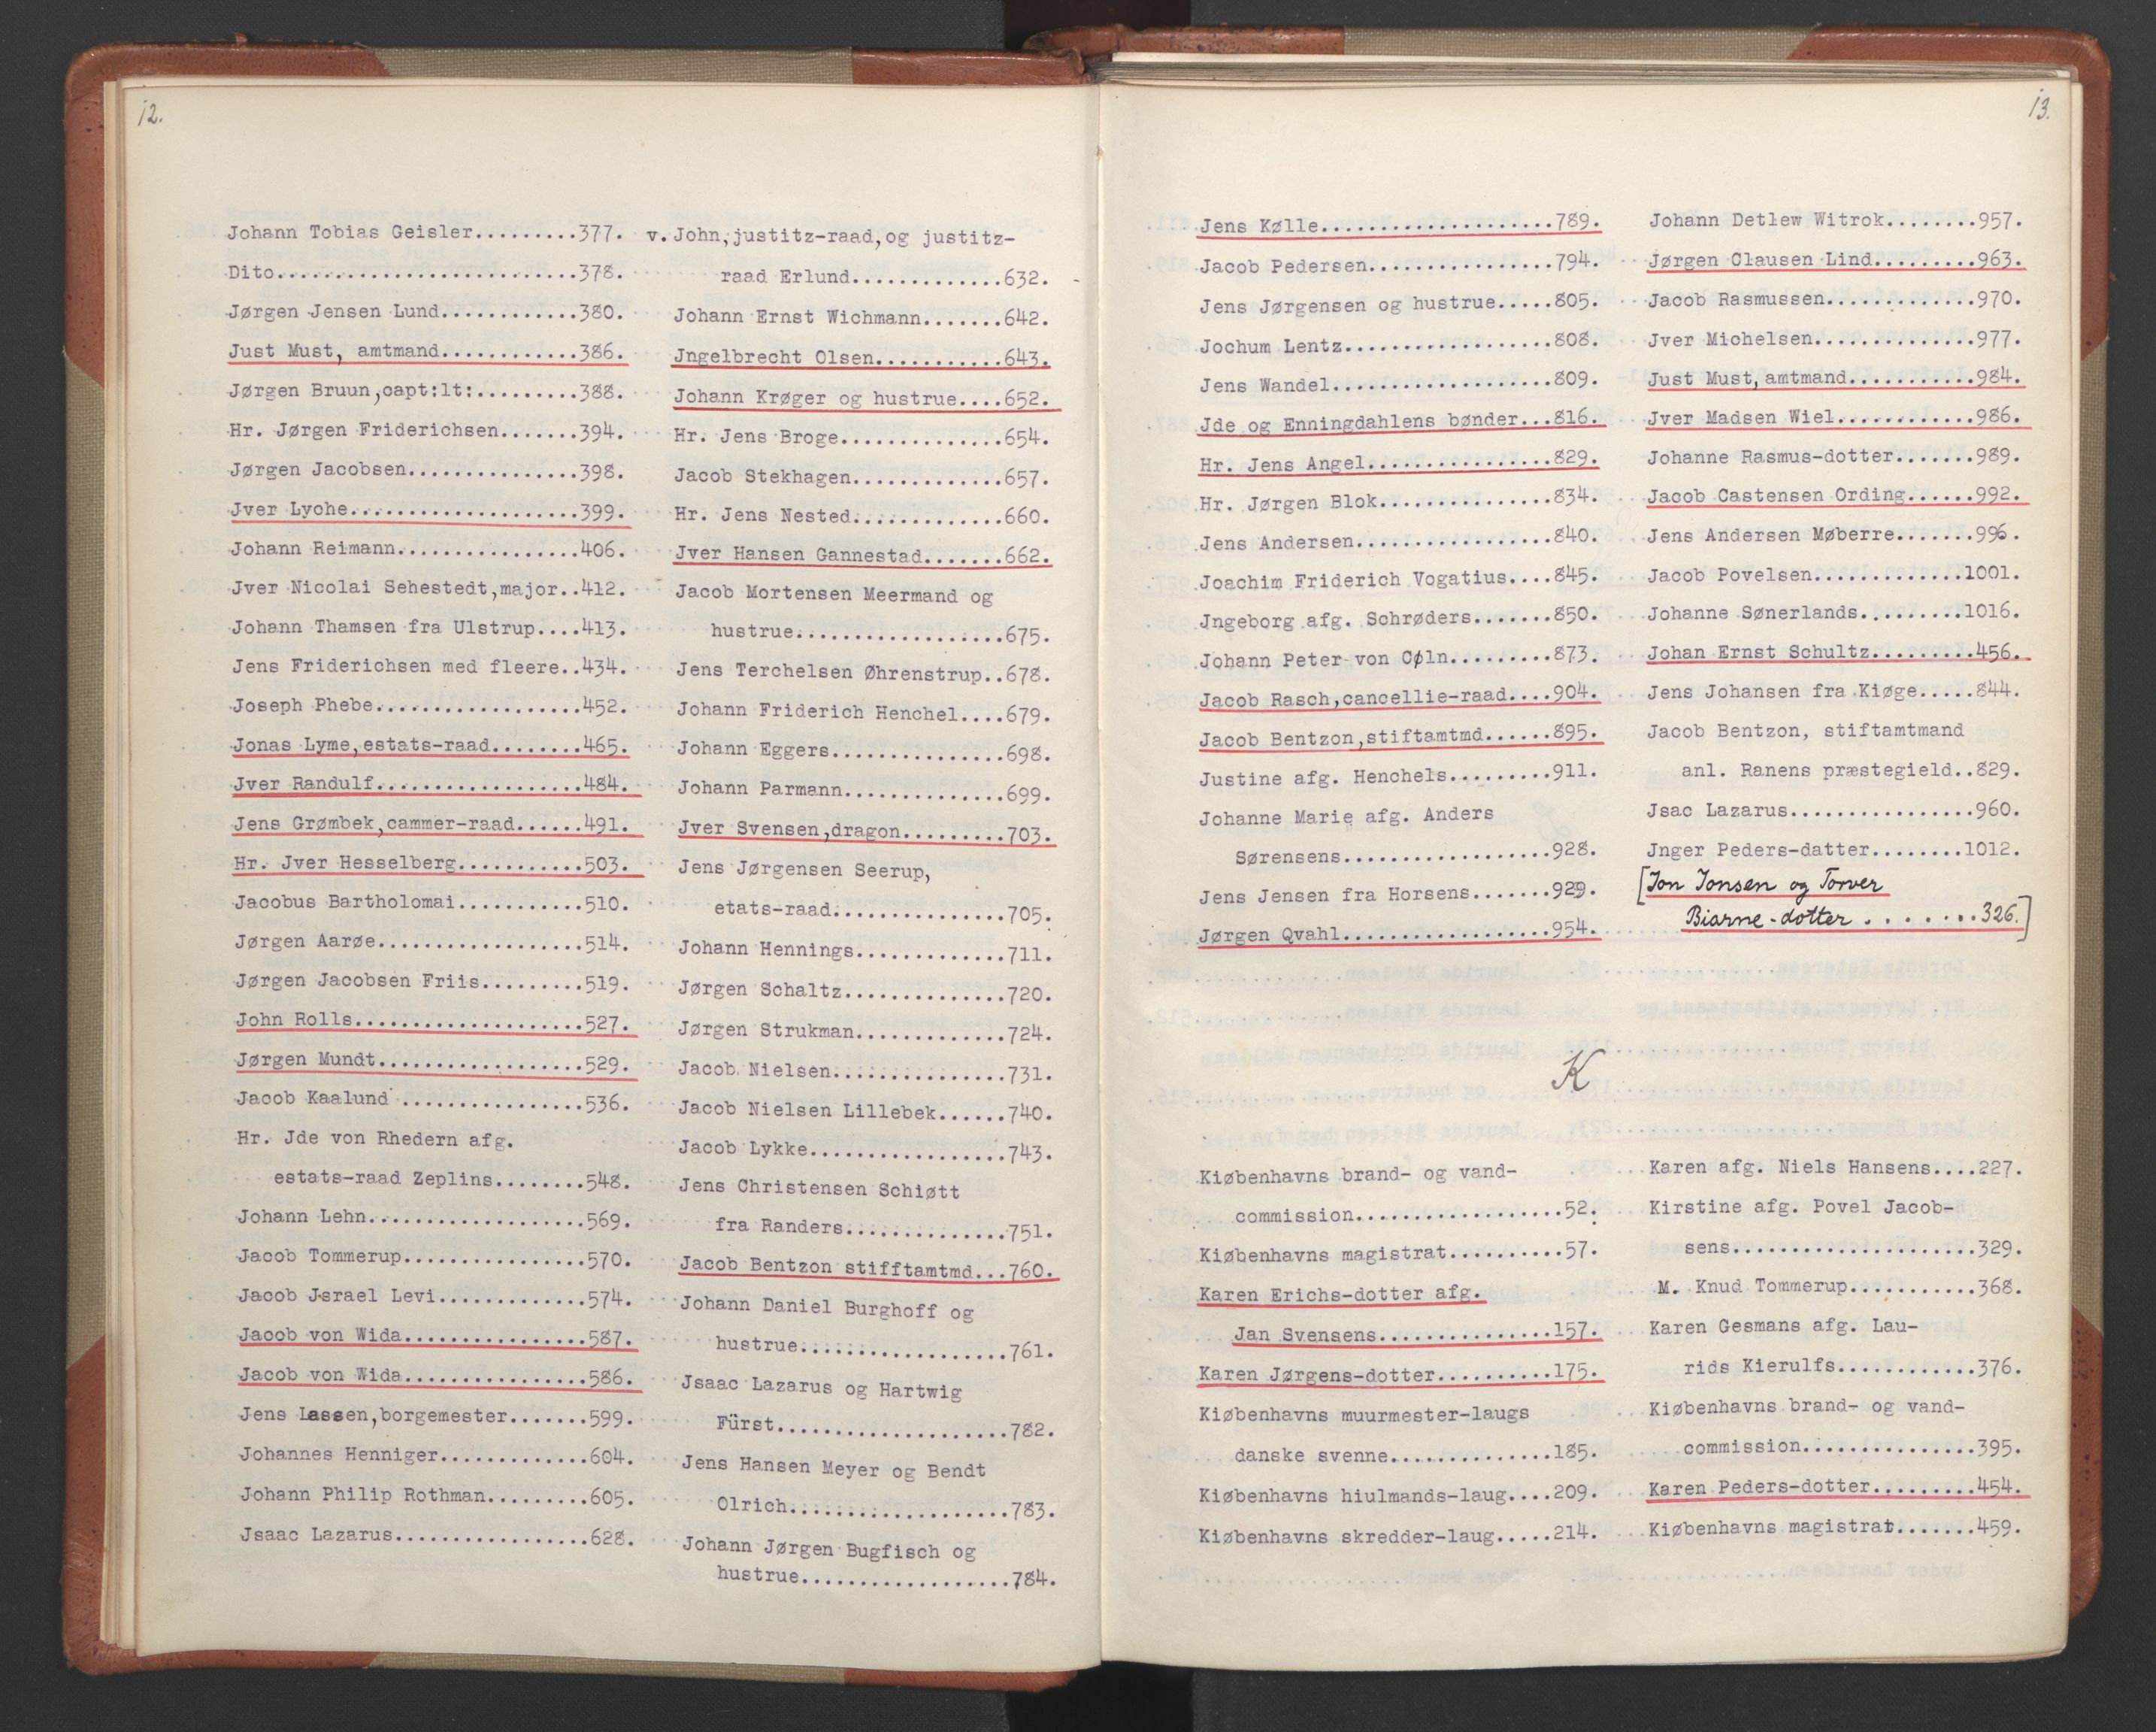 12.
Johann Tobias Geisler.........377.
Dito..........................378.
Jørgen Jensen Lund............380.
Just Must, amtmand............386.
Jørgen Bruun,capt:lt:.........388.
Hr. Jørgen Friderichsen.......394.
Jørgen Jacobsen...............398.
Jver Lyche....................399.
Johann Reimann................406.
Jver Nicolai Sehestedt,major..412.
Johann Thamsen fra Ulstrup....413.
Jens Friderichsen med fleere..434.
Joseph Phebe..................452.
Jonas Lyme,estats-raad........465.
Jver Randulf..................484.
Jens Grømbek,cammer-raad......491.
Hr. Jver Hesselberg...........503.
Jacobus Bartholomai...........510.
Jørgen Aarøe..................514.
Jørgen Jacobsen Friis.........519.
John Rolls....................527.
Jørgen Mundt..................529.
Jacob Kaalund ................536.
Hr. Jde von Rhedern afg.
estats-raad Zeplins........548.
Johann Lehn...................569.
Jacob Tommerup................570.
Jacob Jsrael Levi.............574.
Jacob von Wida................587.
Jacob von Wida................586.
Jens Lassen,borgemester.......599.
Johannes Henniger.............604.
Johann Philip Rothman.........605.
Jsaac Lazarus.................628.
v. John,justitz-raad,og justitz-
raad Erlund.............632.
Johann Ernst Wichmann.......642.
Jngelbrecht Olsen...........643.
Johann Krøger og hustrue....652.
Hr. Jens Broge..............654.
Jacob Stekhagen.............657.
Hr. Jens Nested.............660.
Jver Hansen Gannestad.......662.
Jacob Mortensen Meermand og
hustrue..................675.
Jens Terchelsen Øhrenstrup..678.
Johann Friderich Henchel....679.
Johann Eggers...............698.
Johann Parmann..............699.
Jver Svensen,dragon.........703.
Jens Jørgensen Seerup,
etats-raad...............705.
Johann Hennings.............711.
Jørgen Schaltz..............720.
Jørgen Strukman.............724.
Jacob Nielsen...............731.
Jacob Nielsen Lillebek......740.
Jacob Lykke.................743.
Jens Christensen Schiøtt
fra Randers..............751.
Jacob Bentzon stifftamtmd...760.
Johann Daniel Burghoff og
hustrue..................761.
Jsaac Lazarus og Hartwig
Fürst....................782.
Jens Hansen Meyer og Bendt
Olrich...................783.
Johann Jørgen Bugfisch og
hustrue..................784.
13.
Jens Kølle....................789.
Jacob Pedersen................794.
Jens Jørgensen og hustrue.....805.
Jochum Lentz..................808.
Jens Wandel...................809.
Jde og Enningdahlens bønder...816.
Hr. Jens Angel................829.
Hr. Jørgen Blok...............834.
Jens Andersen.................840.
Joachim Friderich Vogatius....845.
Jngeborg afg. Schrøders.......850.
Johann Peter von Cøln.........873.
Jacob Rasch,cancellie-raad....904.
Jacob Bentzon,stiftamtmd......895.
Justine afg. Henchels.........911.
Johanne Marie afg. Anders
Sørensens..................928.
Jens Jensen fra Horsens.......929.
Jørgen Qvahl..................954.
Johann Detlew Witrok........957.
Jørgen Clausen Lind.........963.
Jacob Rasmussen.............970.
Jver Michelsen..............977.
Just Must,amtmand...........984.
Jver Madsen Wiel............986.
Johanne Rasmus-dotter.......989.
Jacob Castensen Ording......992.
Jens Andersen Møberre.......996.
Jacob Povelsen.............1001.
Johanne Sønerlands.........1016.
Johan Ernst Schultz.........456.
Jens Johansen fra Kiøge.....844.
Jacob Bentzon, stiftamtmand
anl. Ranens præstegield..829.
Jsac Lazarus................960.
Jnger Peders-datter........1012.
[Jon Jonsen og Torver
Biarne-dotter.......326.]
K
Kiøbenhavns brand- og vand-
commission..................52.
Kiøbenhavns magistrat..........57.
Karen Erichs-dotter afg.
Jan Svensens...............157.
Karen Jørgens-dotter..........175.
Kiøbenhavns muurmester-laugs
danske svenne..............185.
Kiøbenhavns hiulmands-laug....209.
Kiøbenhavns skredder-laug.....214.
Karen afg. Niels Hansens....227.
Kirstine afg. Povel Jacob-
sens.....................329.
M. Knud Tommerup............368.
Karen Gesmans afg. Lau-
rids Kierulfs............376.
Kiøbenhavns brand- og vand-
commission...............395.
Karen Peders-dotter.........454.
Kiøbenhavns magistrat.......459.